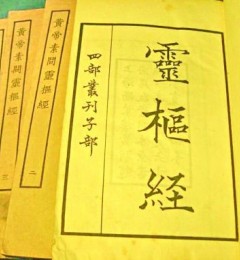 靈樞経
四部叢刊子部
黃帝素問靈樞經
二
黃帝素問靈樞經
三